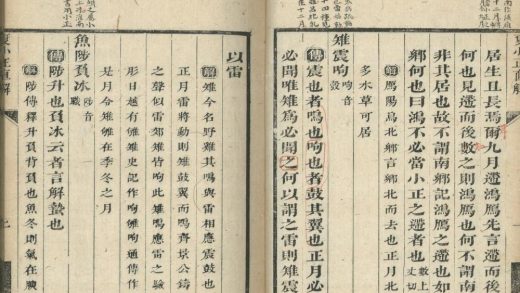 居生且長焉爾九月遰鴻鴈先言遰而後
何也見遰而後數之則鴻鴈也何不謂南
非其居也故不謂南鄉記鴻鴈之遰也如
鄉何也曰鴻不必當小正之遰者也 數上
解鴈陽鳥北鄉言鄉北而去也正月北
多水草可居
雉震呴
傳震也者鳴也呴也者鼓其翼也正月必
必聞唯雉為必聞之何以謂之雷則雉震
以雷
解雉今名野雞其鳴與雷相應震鼓也
正月雷將動則雉鼓翼而鳴齊景公鑄
之聲似雷郊雉皆呴此雉鳴應雷之驗
彤日越有雊雉史記作呴雊呴通傳作
是月令雉雊在季冬之月
魚陟負冰
傳陟升也負冰云者言解蟄也
解陟傳釋升負背負也魚冬則氣在腴